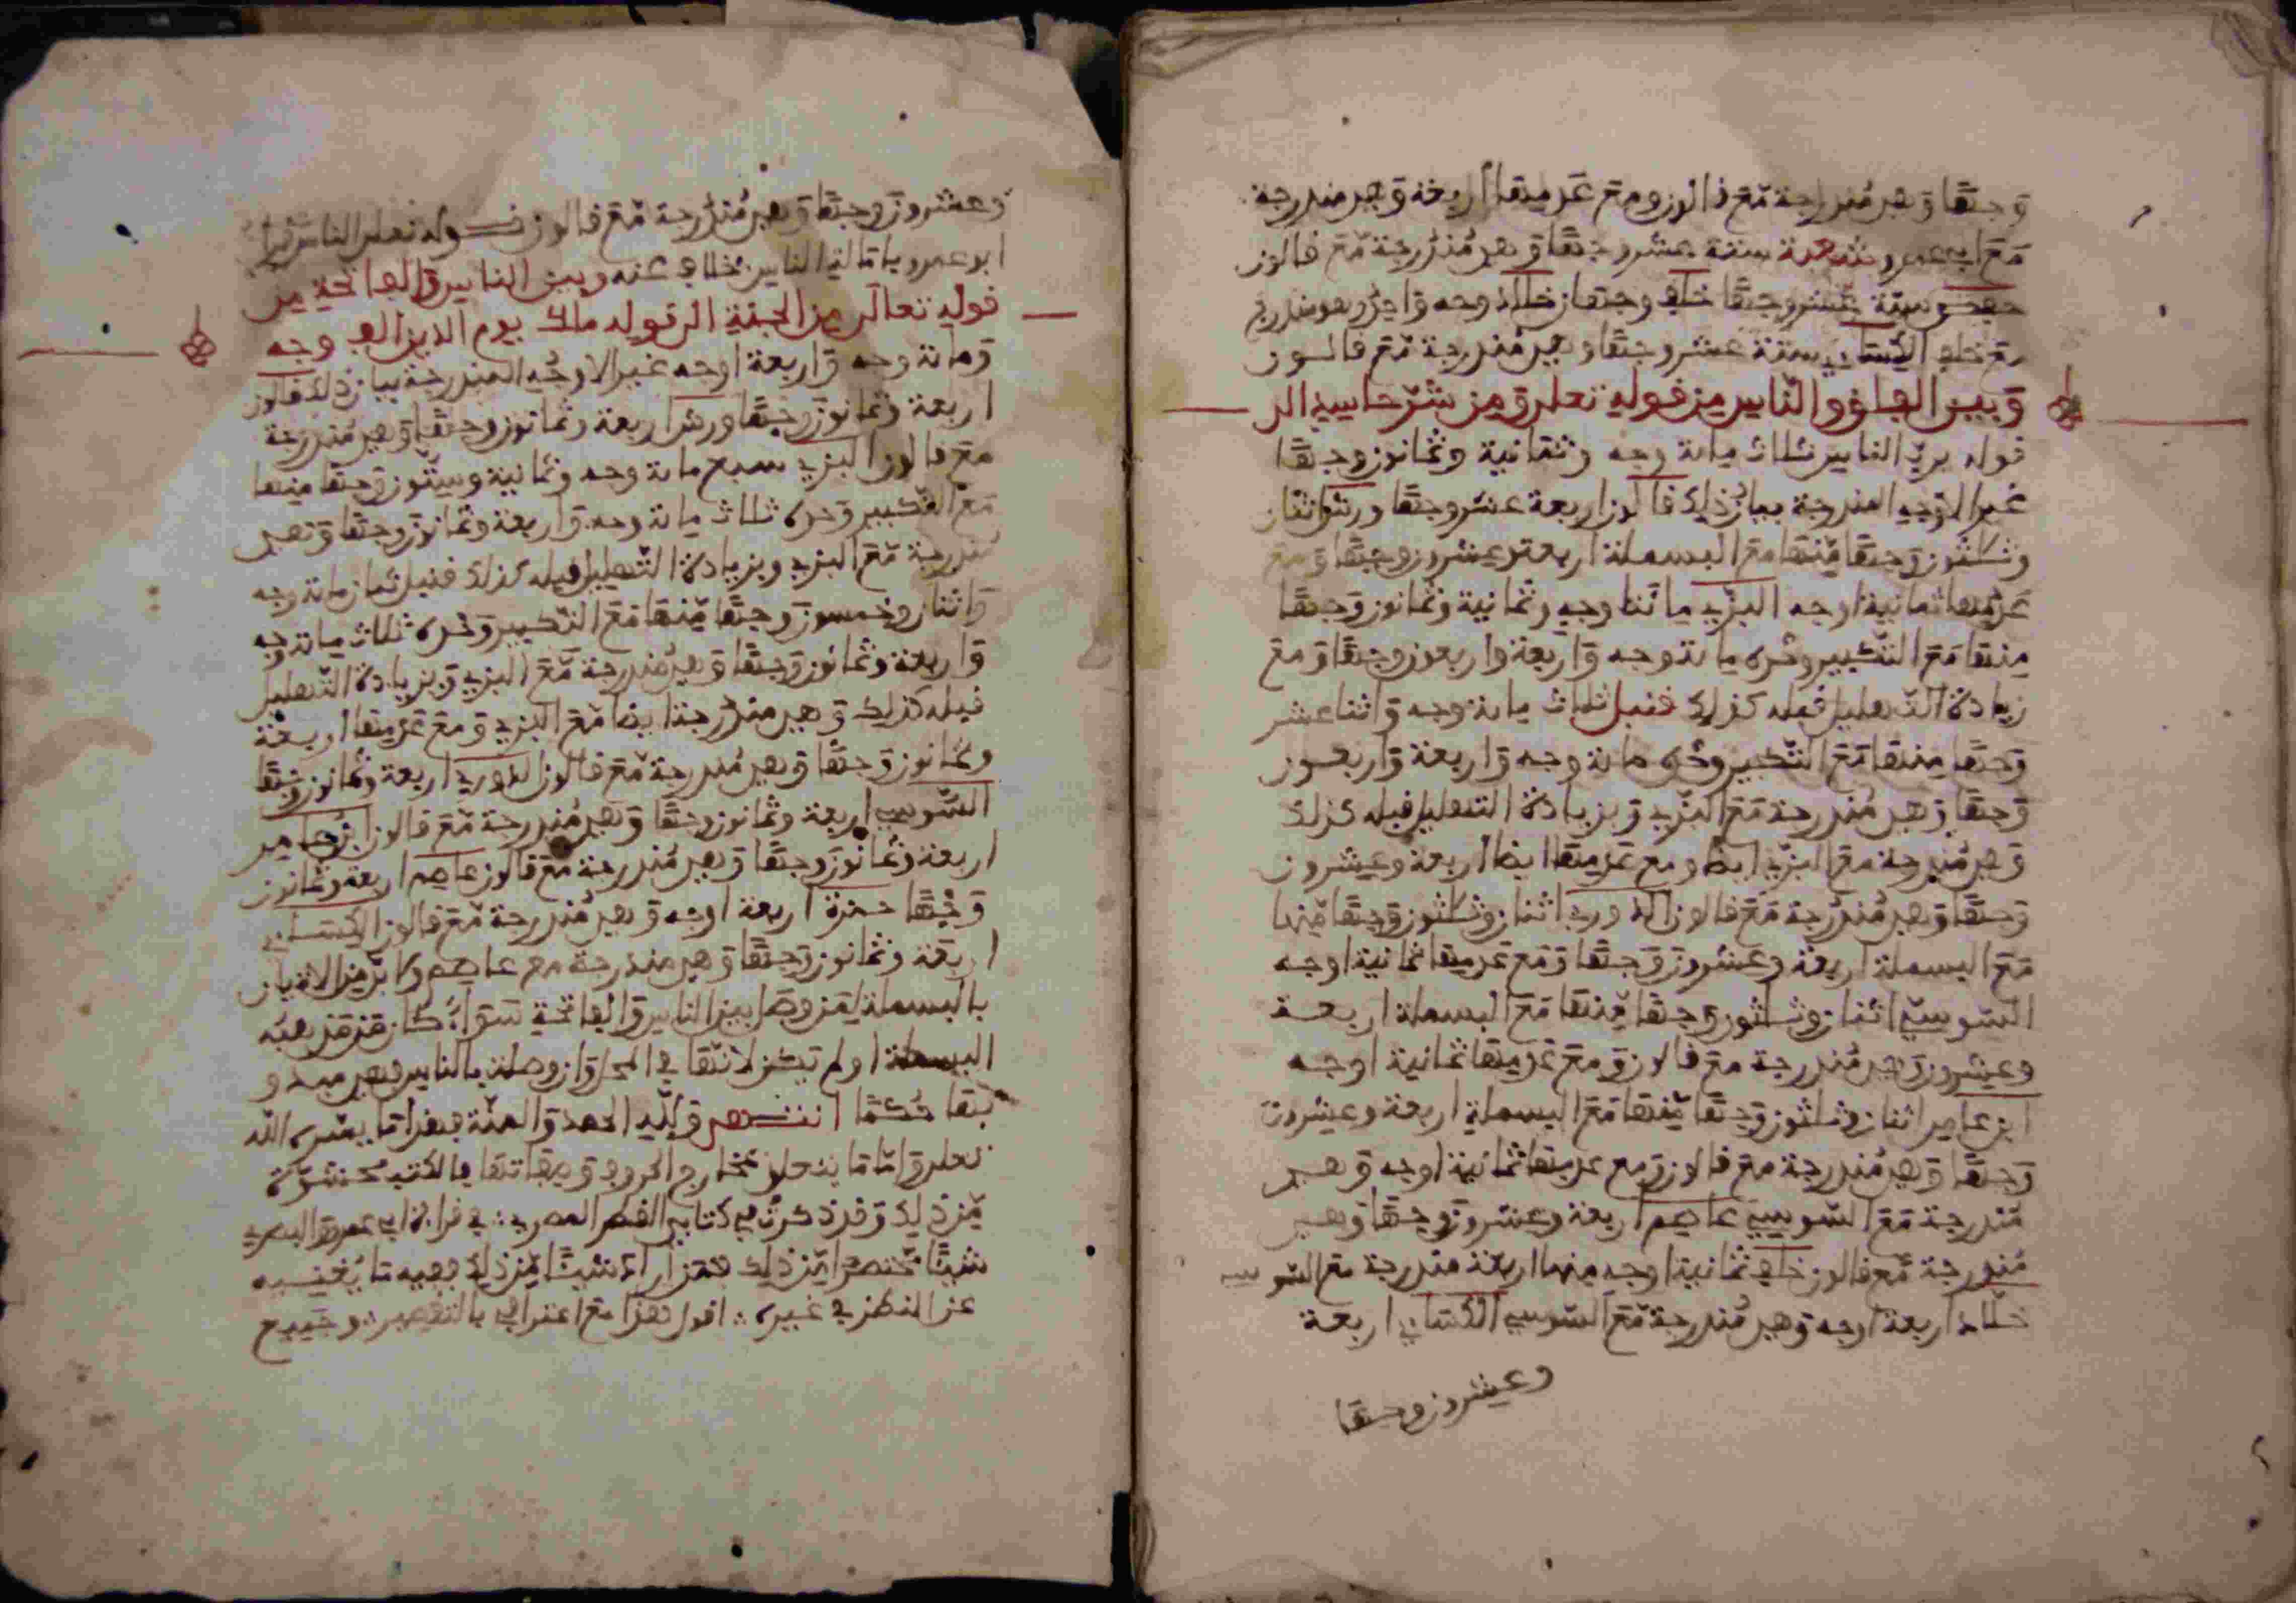 وجهًا وهي مندرجة مع قالون ومع عدمها أربعة وهي مندرجة
مع أبي عمرو شعبة ستة عشر وجهًا وهي مندرجة مع قالون
حفص ستة عشر وجهًا خلف وجهان خلاد وجه واحد وهو مندرج
مع خلف الكسائي ستة عشر وجهًا وهي مندرجة مع قالون
وبين الفلق والناس من قوله تعلى ومن شر حاسد الى
قوله برب الناس ثلاث مائة وجه وثمانية وثمانون وجهًا
غير الاوجه المندرجة بيان ذلك قالون اربعة عشر وجهًا ورش اثنان
وثلثون وجهًا منها مع البسملة اربعة وعشرون وجهًا ومع
عدمها ثمانية اوجه البزي مائتا وجه وثمانية وثمانون وجهًا
منها مع التكبير وحده مائة وجه واربعة واربعون وجهًا ومع
زيادة التهليل قبله كذلك قنبل ثلاث مائة وجه واثنا عشر
وجهًا منها مع التكبير وحده مائة وجه واربعة واربعون
وجهًا وهي مندرجة مع البزي وبزيادة التهليل قبله كذلك
وهي مندرجة مع البزي ايضا ومع عدمها ايضا اربعة وعشرون
وجهًا وهي مندرجة مع قالون الدوري اثنان وثلثون وجهًا منها
مع البسملة اربعة وعشرون وجهًا ومع عدمها ثمانية اوجه
السوسي اثنان وثلثون وجهًا منها مع البسملة اربعة
وعشرون وهي مندرجة مع قالون ومع عدمها ثمانية اوجه
ابن عامر اثنان وثلثون وجهًا منها مع البسملة اربعة وعشرون
وجهًا وهي مندرجة مع قالون ومع عدمها ثمانية اوجه وهي
مندرجة مع السوسي عاصم اربعة وعشرون وجهًا وهي
مندرجة مع قالون خلف ثمانية اوجه منها اربعة مندرجة مع السوسي
خلاد اربعة اوجه وهي مندرجة مع السوسي الكسائي اربعة
وعشرون وجها
وعشرون وجهًا وهي مندرجة مع قالون قوله تعلى الناس
ابو عمرو بامالة الناس بخلاف عنه وبين الناس والفاتحة من
قوله تعالى من الجنة الى قوله ملك يوم الدين الف وجه
ومائة وجه واربعة اوجه غير الاوجه المندرجة بيان ذلك قالون
اربعة وثمانون وجهًا ورش اربعة وثمانون وجهًا وهي مندرجة
مع قالون البزي سبع مائة وجه وثمانية وستون وجهًا منها
مع التكبير وحده ثلاث مائة وجه واربعة وثمانون وجهًا وهي
مندرجة مع البزي وبزيادة التهليل قبله كذلك قنبل ثمان مائة وجه
واثنان وخمسون وجهًا منها مع التكبير وحده ثلاث مائة وجه
واربعة وثمانون وجهًا وهي مندرجة مع البزي وبزيادة التهليل
قبله كذلك وهي مندرجة ايضا مع البزي ومع عدمها اربعة
وثمانون وجهًا وهي مندرجة مع قالون الدوري اربعة وثمانون وجهًا
السوسي اربعة وثمانون وجهًا وهي مندرجة مع قالون ابن عامر
اربعة وثمانون وجهًا وهي مندرجة مع قالون عاصم اربعة وثمانون
وجهًا حمزة اربعة اوجه وهي مندرجة مع قالون الكسائي
اربعة وثمانون وجهًا وهي مندرجة مع عاصم ولا بد من الاتيان
بالبسملة لمن وصل بين الناس والفاتحة سواء كان من مذهبه
البسملة او لم تكن لانها في الحل وان وصلت بالناس فهي مبدو
بها حكمًا انتهى ولله الحمد والمنة فهذا ما يسره الله
تعلى واما ما يتعلق بمخارج الحروف وصفاتها فالكتب مشحونة
من ذلك وقد ذكرت في كتابي القطر المصري في قراءة ابي عمرو البصري
شيئًا مختصرا من ذلك فمن اراد شيئًا من ذلك ففيه ما يغنيه
عن النظر في غيره اقول هذا مع اعترافي بالتقصير وجميع